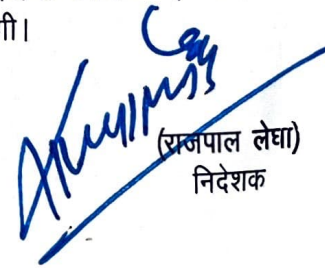 गी।
(राजपाल लेघा)
निदेशक